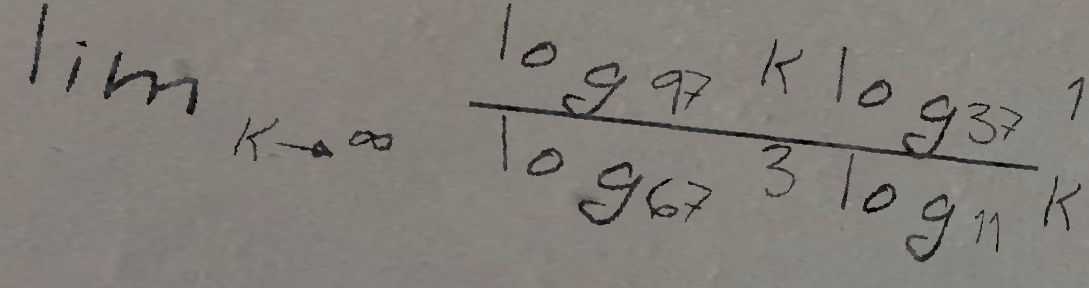 lim K→∞ log97 K log37 1
log67 3 log11 K